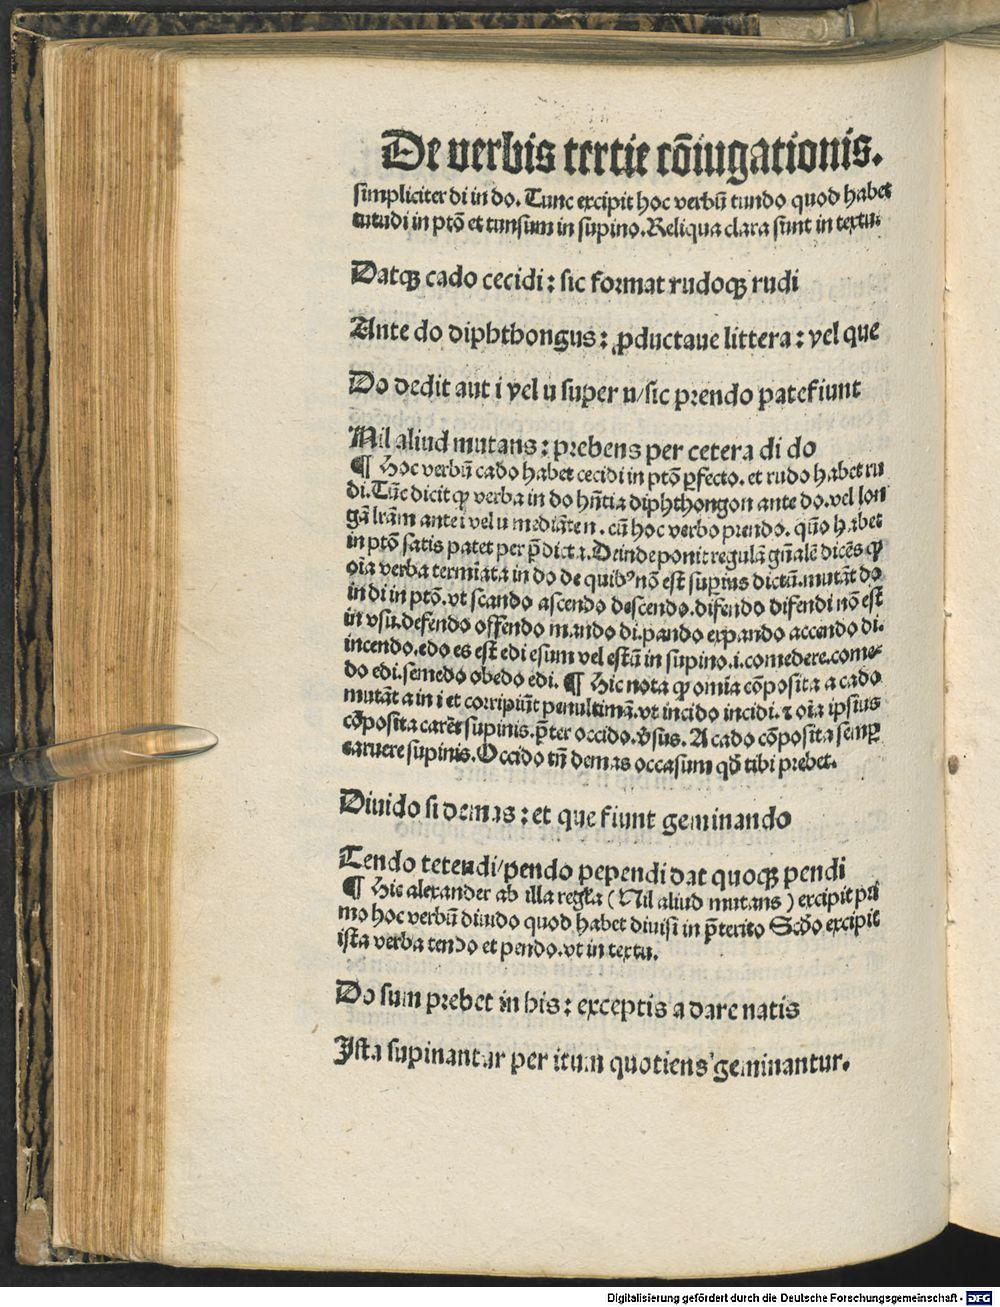 De verbis tertie cōiugationis.
simpliciter di in do. Tunc excipit hoc verbū tundo quod habet
tutudi in ptō et tunsum in supino. Reliqua clara sunt in textu.
Datqꝫ cado cecidi: sic format rudoqꝫ rudi
Ante do diphthongus: ꝓductaue littera: vel que
Do dedit aut i vel u super n/sic prendo patefiunt
Nil aliud mutans: prebens per cetera di do
¶ Hoc verbū cado habet cecidi in ptō ꝑfecto. et rudo habet ru
di. Tūc dicit ꝙ verba in do hn̄tia diphthongon ante do. vel lon
gā lrām ante i vel u mediāte n. cū hoc verbo prendo. quō habet
in ptō satis patet per p̄dicta. Deinde ponit regulā gn̄alē dicēs ꝙ
oīa verba termīata in do de quibꝰ nō est supius dictū. mutāt do
in di in ptō. vt scando ascendo descendo. difendo difendi nō est
in vsu. defendo offendo mando di. pando expando accendo di.
incendo. edo es est edi esum vel estū in supino. i. comedere. come⸗
do edi. semedo obedo edi. ¶ Hic nota ꝙ omīa cōposita a cado
mutāt a in i et corripiūt penultimā. vt incido incidi. ⁊ oīa ipsius
cōposita carēt supinis. p̄ter occido. v̄sus. A cado cōposita semꝑ
caruere supinis. Occido tn̄ demas occasum qd̄ tibi prebet.
Diuido si demas: et que fiunt geminando
Tendo tetendi/pendo pependi dat quoqꝫ pendi
¶ Hic alexander ab illa regła (Nil aliud mutans) excipit pri
mo hoc verbū diuido quod habet diuisi in p̄terito Scd̄o excipit
ista verba tendo et pendo. vt in textu.
Do sum prebet in his: exceptis a dare natis
Ista supinantur per itum quotiens geminantur.
Digitalisierung gefördert durch die Deutsche Forschungsgemeinschaft - DFG